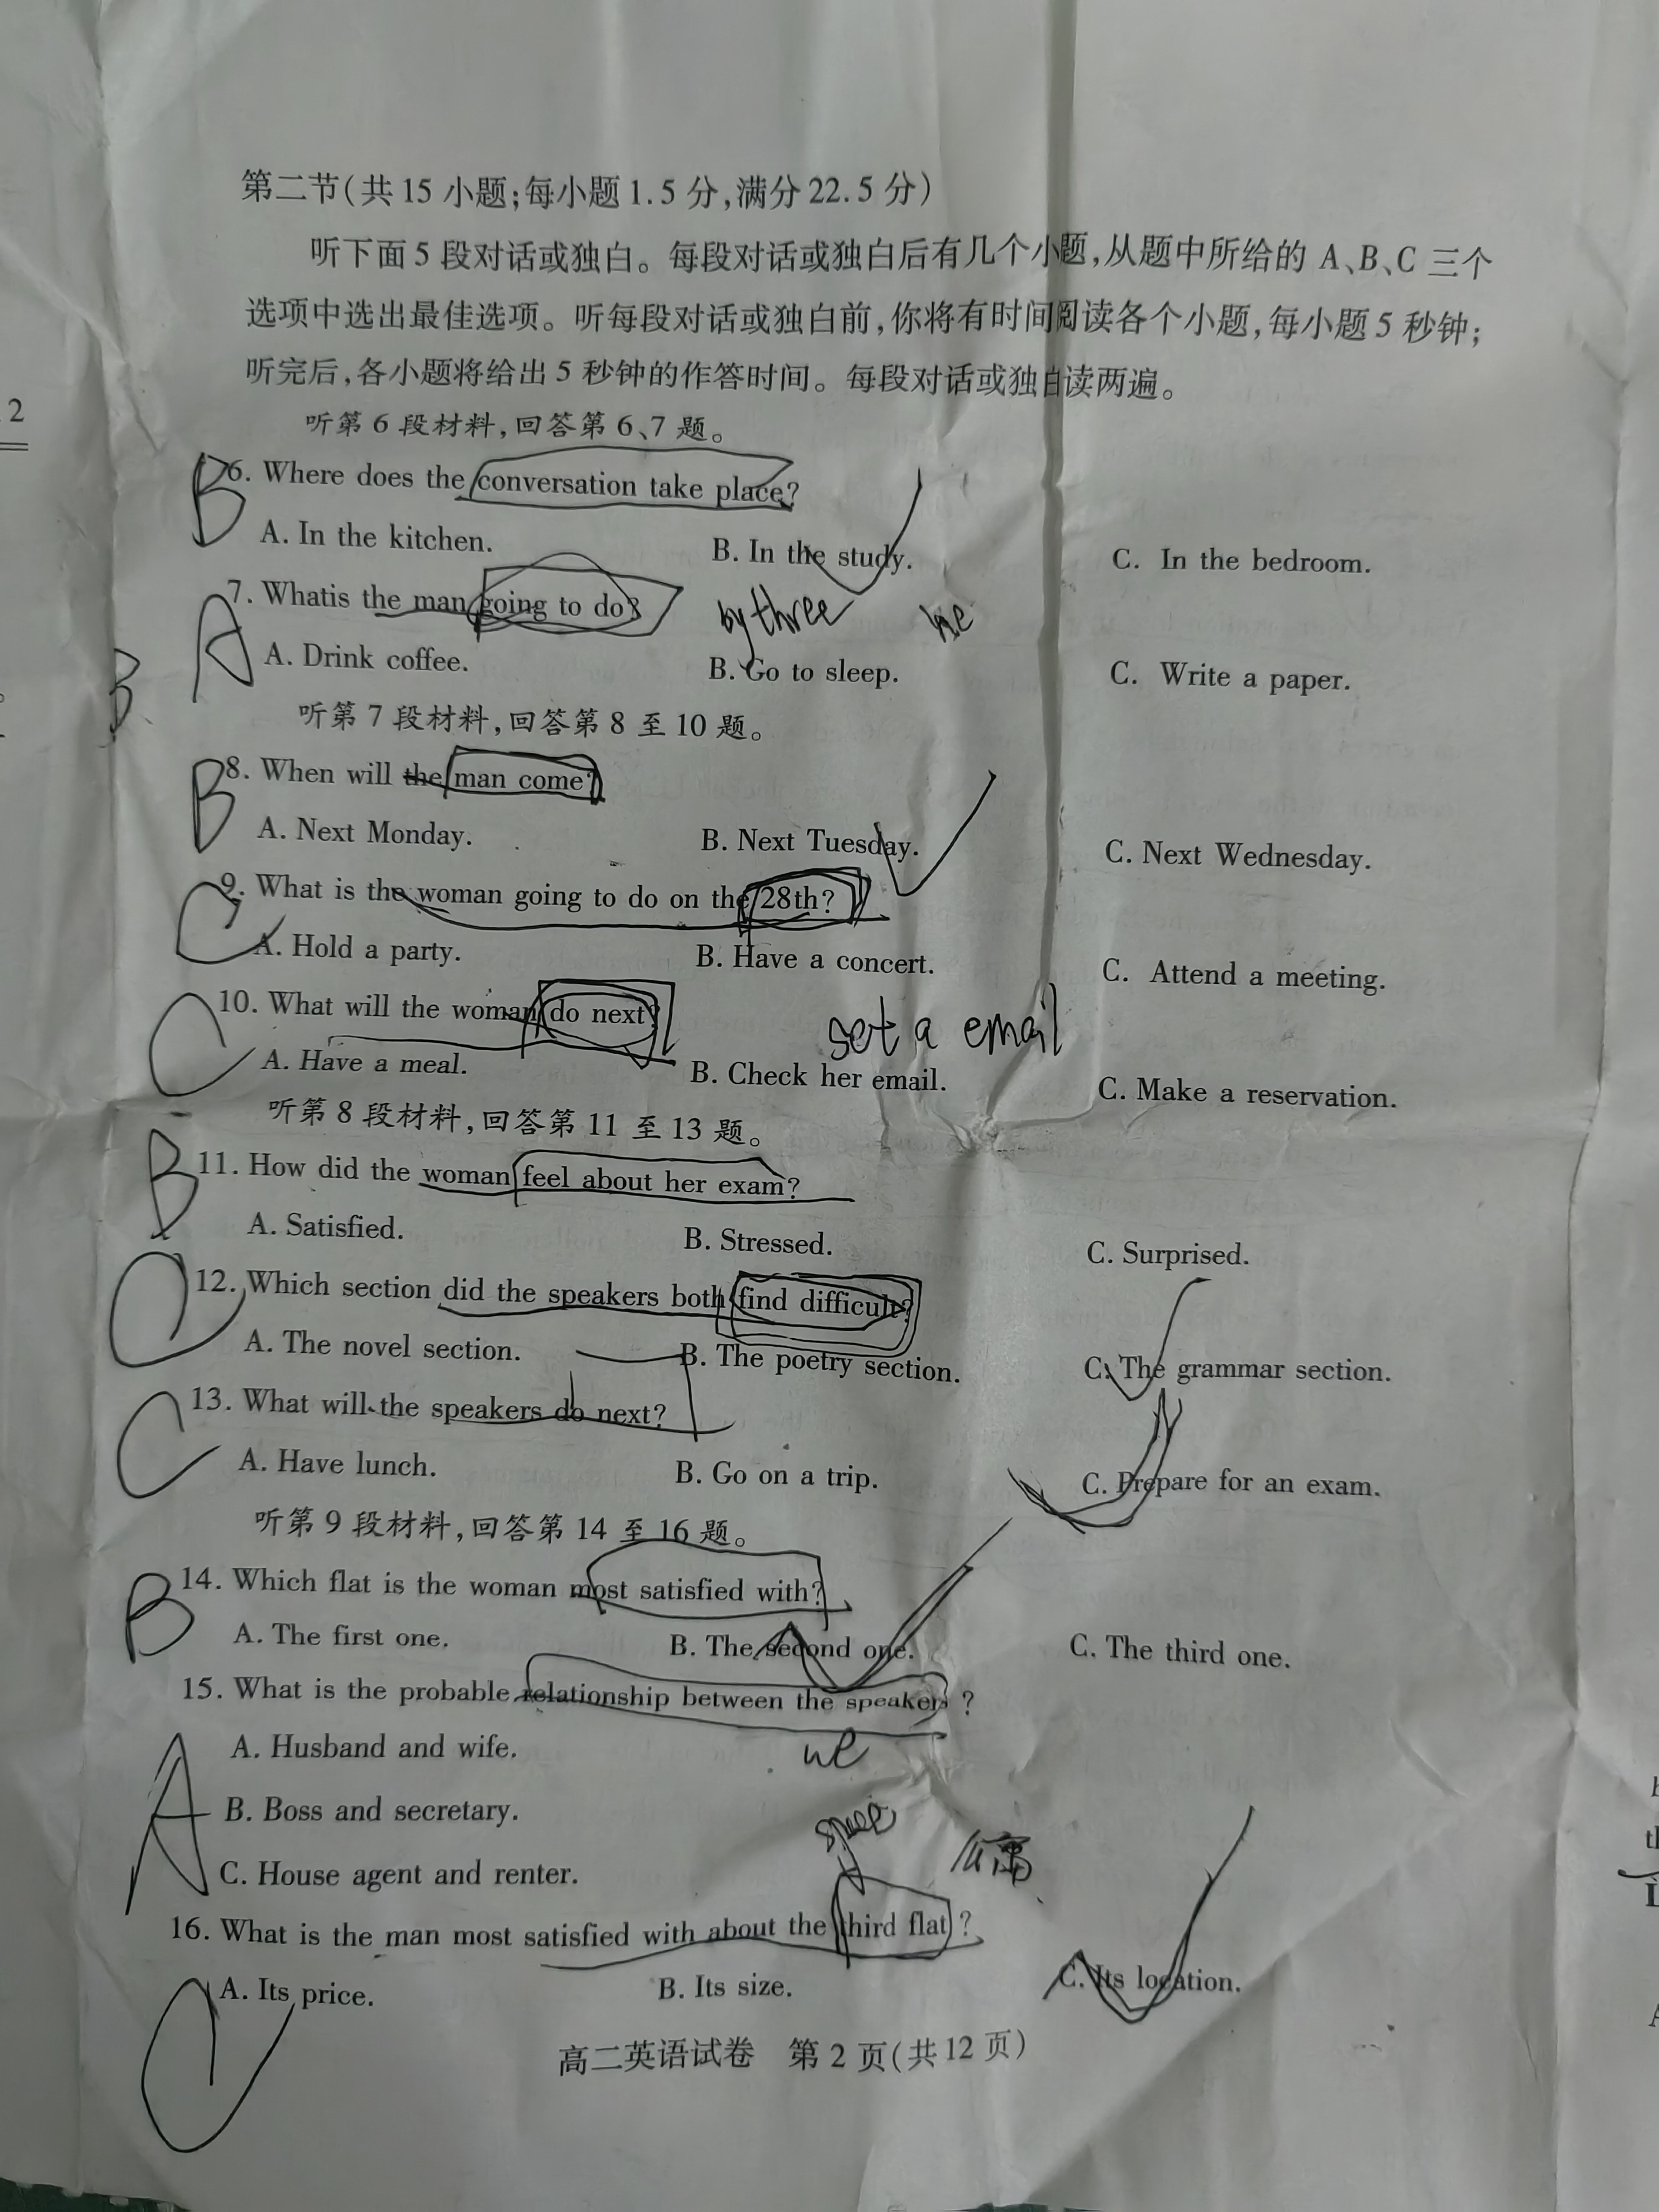 第二节(共15小题;每小题1.5分,满分22.5分)
听下面5段对话或独白。每段对话或独白后有几个小题,从题中所给的A、B、C三个
选项中选出最佳选项。听每段对话或独白前,你将有时间阅读各个小题,每小题5秒钟;
听完后,各小题将给出5秒钟的作答时间。每段对话或独白读两遍。
2
听第6段材料,回答第6、7题。
B 6. Where does the conversation take place?
A. In the kitchen. B. In the study. C. In the bedroom.
A 7. Whatis the man going to do?
by three
A. Drink coffee. B. Go to sleep. C. Write a paper.
B
听第7段材料,回答第8至10题。
B 8. When will the man come?
A. Next Monday. B. Next Tuesday. C. Next Wednesday.
C 9. What is the woman going to do on the 28th?
A. Hold a party. B. Have a concert. C. Attend a meeting.
C 10. What will the woman do next?
set a email
A. Have a meal. B. Check her email. C. Make a reservation.
听第8段材料,回答第11至13题。
B 11. How did the woman feel about her exam?
A. Satisfied. B. Stressed. C. Surprised.
C 12. Which section did the speakers both find difficult?
A. The novel section. B. The poetry section. C. The grammar section.
C 13. What will the speakers do next?
A. Have lunch. B. Go on a trip. C. Prepare for an exam.
听第9段材料,回答第14至16题。
B 14. Which flat is the woman most satisfied with?
A. The first one. B. The second one. C. The third one.
15. What is the probable relationship between the speakers?
we
A. Husband and wife.
A B. Boss and secretary.
C. House agent and renter.
16. What is the man most satisfied with about the third flat?
C A. Its price. B. Its size. C. Its location.
高二英语试卷 第2页(共12页)